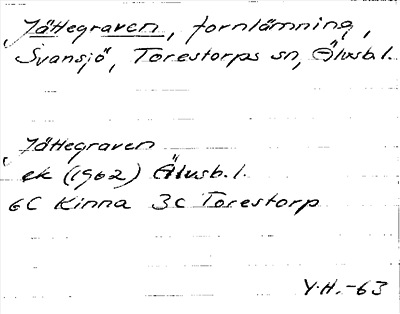 Jättegraven, fornlämning,
Svansjö, Torestorps sn, Älvsb. l.
Jättegraven
ek (1962) Älvsb. l.
6C Kinna 3c Torestorp
Y.H.-63